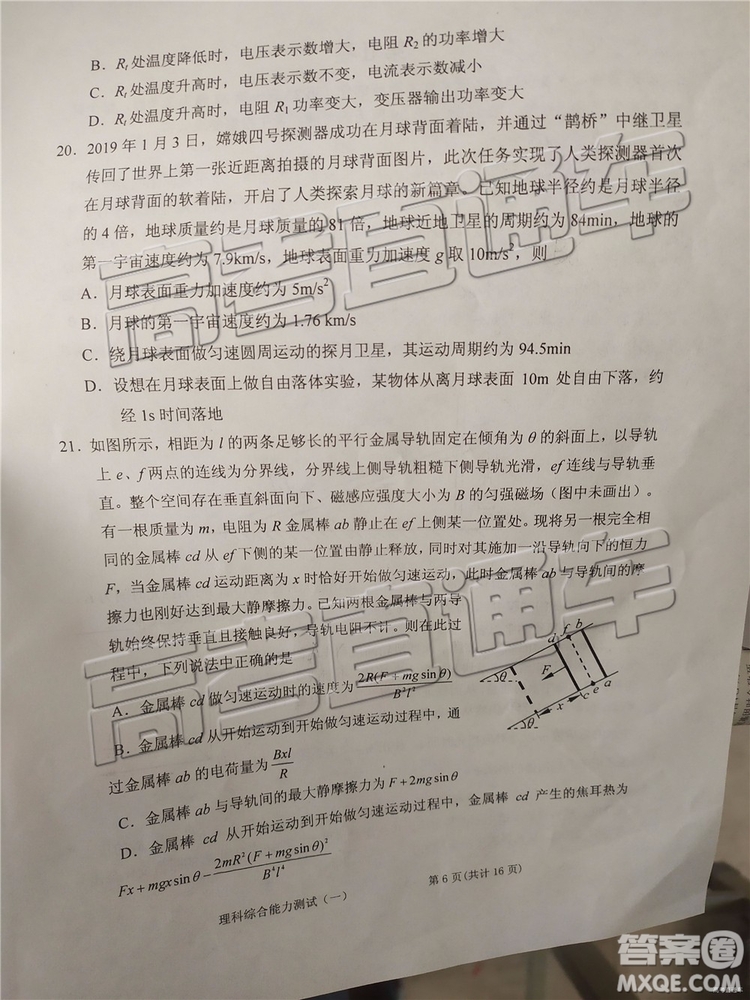 B．Rt处温度降低时，电压表示数增大，电阻 R2 的功率增大
C．Rt处温度升高时，电压表示数不变，电流表示数减小
D．Rt处温度升高时，电阻 R1 功率变大，变压器输出功率变大
20．2019 年 1 月 3 日，嫦娥四号探测器成功在月球背面着陆，并通过“鹊桥”中继卫星
传回了世界上第一张近距离拍摄的月球背面图片，此次任务实现了人类探测器首次
在月球背面的软着陆，开启了人类探索月球的新篇章。已知地球半径约是月球半径
的 4 倍，地球质量约是月球质量的 81 倍，地球近地卫星的周期约为 84min，地球的
第一宇宙速度约为 7.9km/s，地球表面重力加速度 g 取 10m/s²，则
A．月球表面重力加速度约为 5m/s²
B．月球的第一宇宙速度约为 1.76 km/s
C．绕月球表面做匀速圆周运动的探月卫星，其运动周期约为 94.5min
D．设想在月球表面上做自由落体实验，某物体从离月球表面 10m 处自由下落，约
经 1s 时间落地
21．如图所示，相距为 l 的两条足够长的平行金属导轨固定在倾角为 θ 的斜面上，以导轨
上 e、f 两点的连线为分界线，分界线上侧导轨粗糙下侧导轨光滑，ef 连线与导轨垂
直。整个空间存在垂直斜面向下、磁感应强度大小为 B 的匀强磁场（图中未画出）。
有一根质量为 m，电阻为 R 金属棒 ab 静止在 ef 上侧某一位置处。现将另一根完全相
同的金属棒 cd 从 ef 下侧的某一位置由静止释放，同时对其施加一沿导轨向下的恒力
F，当金属棒 cd 运动距离为 x 时恰好开始做匀速运动，此时金属棒 ab 与导轨间的摩
擦力也刚好达到最大静摩擦力。已知两根金属棒与两导
轨始终保持垂直且接触良好，导轨电阻不计。则在此过
程中，下列说法中正确的是
A．金属棒 cd 做匀速运动时的速度为 2R(F+mg sinθ)/B²l²
B．金属棒 cd 从开始运动到开始做匀速运动过程中，通
过金属棒 ab 的电荷量为 Bxl/R
C．金属棒 ab 与导轨间的最大静摩擦力为 F+2mg sinθ
D．金属棒 cd 从开始运动到开始做匀速运动过程中，金属棒 cd 产生的焦耳热为
Fx+mgx sinθ−2mR²(F+mg sinθ)²/B⁴l⁴
d f b
F
θ
x c e a
θ
理科综合能力测试（一）
第 6 页(共计 16 页)
高考直通车
高考直通车
答案圈
MXQE.COM